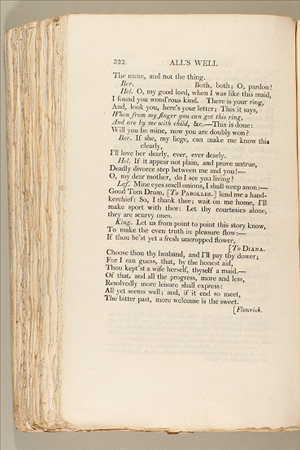 322 ALL'S WELL
The name, and not the thing.
Ber. Both, both; O, pardon!
Hel. O, my good lord, when I was like this maid,
I found you wond'rous kind. There is your ring,
And, look you, here's your letter; This it says,
When from my finger you can get this ring,
And are by me with child, &c.—This is done:
Will you be mine, now you are doubly won?
Ber. If she, my liege, can make me know this
clearly,
I'll love her dearly, ever, ever dearly.
Hel. If it appear not plain, and prove untrue,
Deadly divorce step between me and you!—
O, my dear mother, do I see you living?
Laf. Mine eyes smell onions, I shall weep anon:—
Good Tom Drum, [To PAROLLES.] lend me a hand-
kerchief: So, I thank thee; wait on me home, I'll
make sport with thee: Let thy courtesies alone,
they are scurvy ones.
King. Let us from point to point this story know,
To make the even truth in pleasure flow:—
If thou be'st yet a fresh uncropped flower,
[To DIANA.
Choose thou thy husband, and I'll pay thy dower;
For I can guess, that, by thy honest aid,
Thou kept'st a wife herself, thyself a maid.—
Of that, and all the progress, more and less,
Resolvedly more leisure shall express:
All yet seems well; and, if it end so meet,
The bitter past, more welcome is the sweet.
[Flourish.